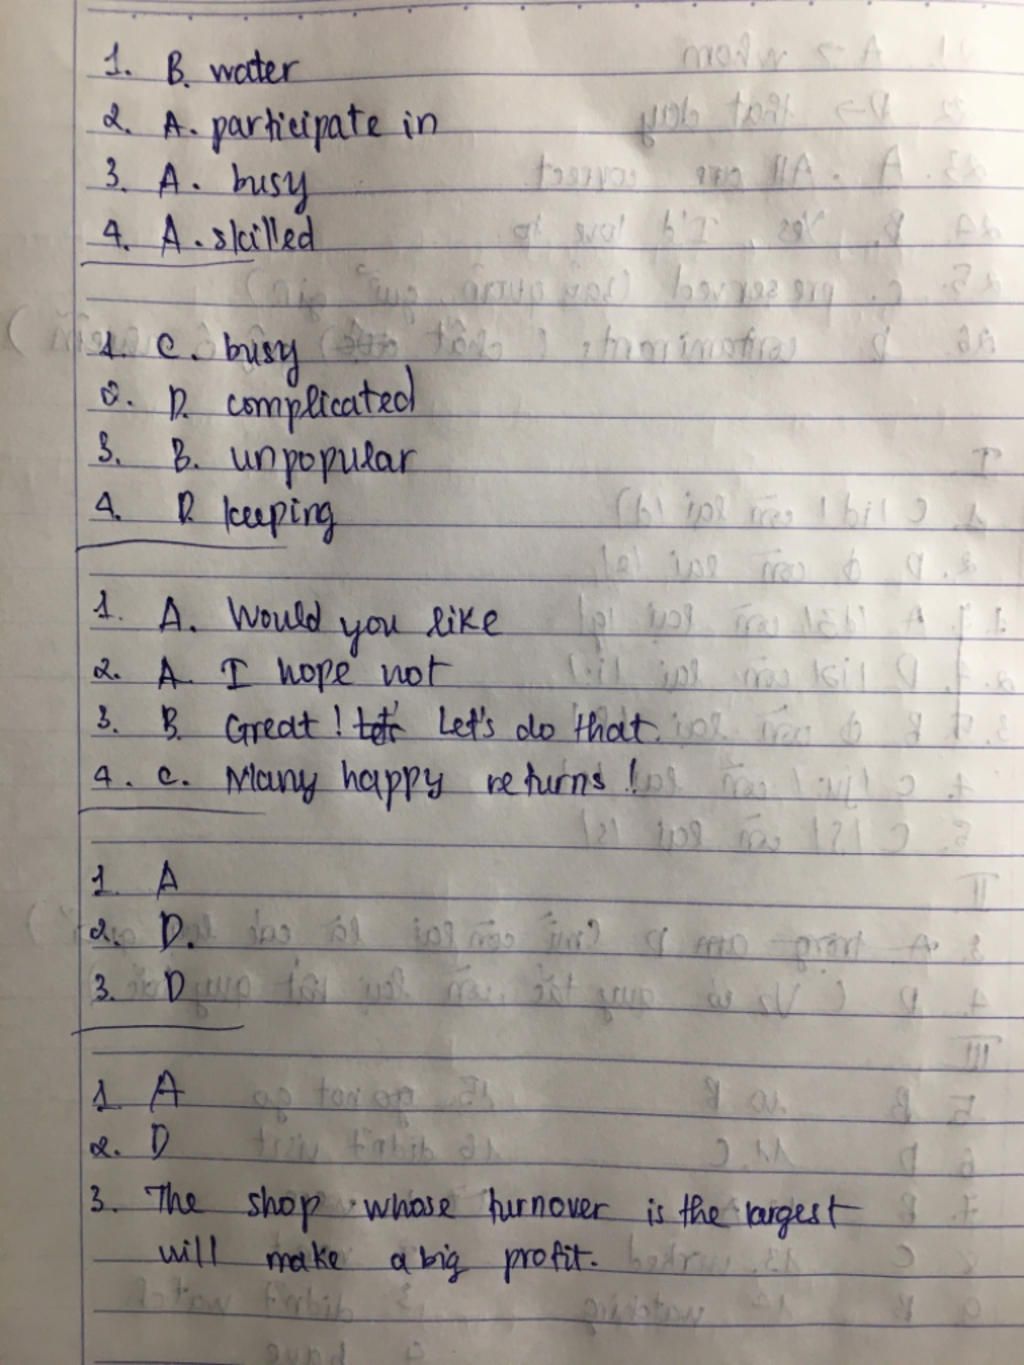 1. B. water
2. A. participate in
3. A. busy
4. A. skilled
1. C. busy
2. D. complicated
3. B. unpopular
4. D keeping
1. A. Would you like
2. A. I hope not
3. B. Great! Let's do that.
4. C. Many happy returns!
1. A
2. D.
3. D
1. A
2. D
3. The shop whose turnover is the largest
will make a big profit.